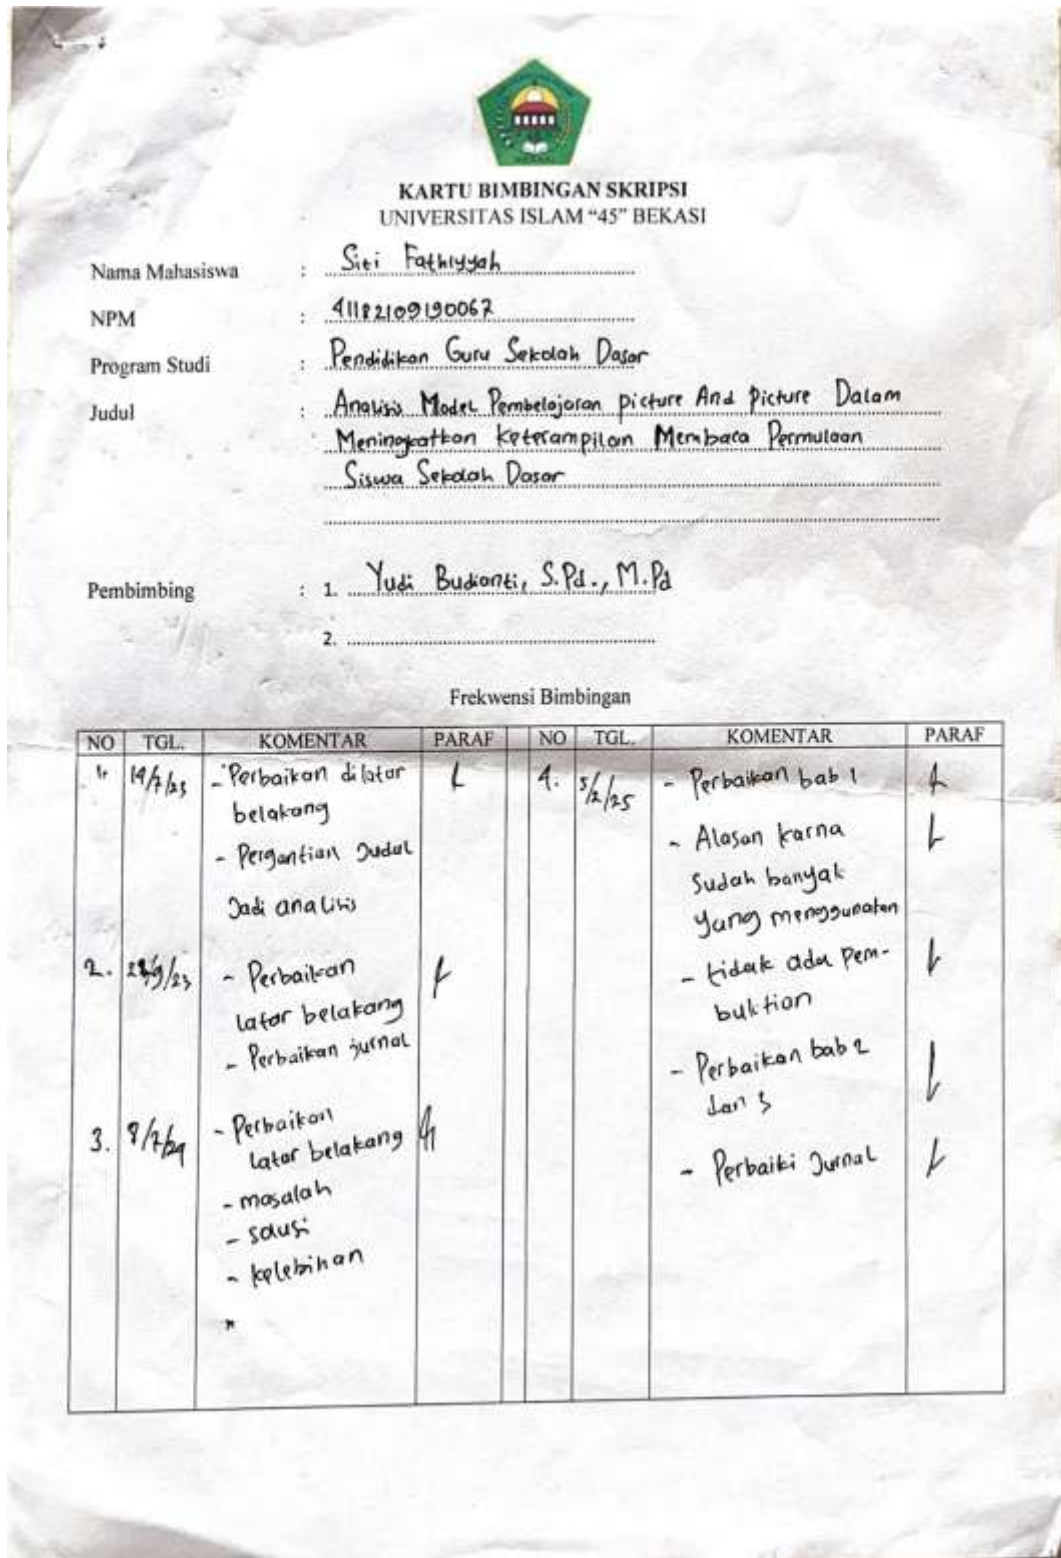 KARTU BIMBINGAN SKRIPSI
UNIVERSITAS ISLAM “45” BEKASI
Nama Mahasiswa : Siti Fathiyyah
NPM : 41182109190067
Program Studi : Pendidikan Guru Sekolah Dasar
Judul : Analisis Model Pembelajaran picture And Picture Dalam
Meningkatkan Keterampilan Membaca Permulaan
Siswa Sekolah Dasar
Pembimbing : 1. Yudi Budianti, S.Pd., M.Pd
2.
Frekwensi Bimbingan
NO TGL. KOMENTAR PARAF NO TGL. KOMENTAR PARAF
1. - Perbaikan dilatar
belakang
- Pergantian Judul
Jadi analisis
2. - Perbaikan
latar belakang
- Perbaikan jurnal
3. - Perbaikan
latar belakang
- masalah
- solusi
- kelebihan
4. 5/2/25 - Perbaikan bab 1
- Alasan karna
sudah banyak
yang menggunakan
- tidak ada pem-
buktian
- Perbaikan bab 2
dan 3
- Perbaiki Jurnal